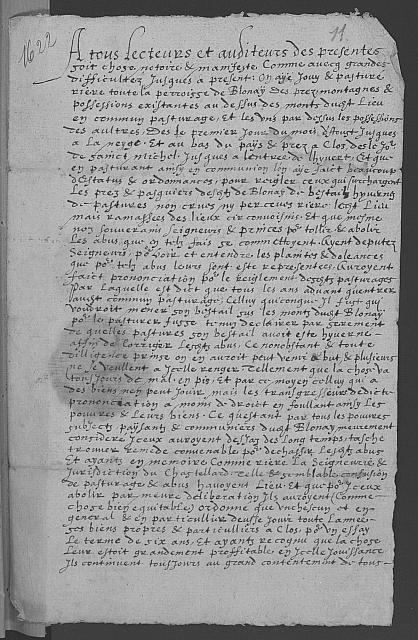 1622
11.
A tous Lecteurs et auditeurs des presentes
soit chose notoire & manifeste. Comme avecq grandes
difficultez Jusques a present. On aye Jouy & pasturé
riere toute la perroisse de Blonay des prez montagnes &
possessions existantes au dessus des monts dudt Lieu
en commun pasturage, Et les uns par dessus les possessions
des aultres, Des le premier Jour du mois d'Aoust Jusques
a La neyge. Et au bas du pays & prez a Clos, des le Jor
de sainct michel Jusques a lentree de lhyvert, Et que
en pasturant ainsy en commun lon aye faict beaucoup
d'Estatus & ordonnances, pour reigler ceux qui surchargent
Les prez & pasquiers desdts de Blonay de bestail hyverné
de pastures non crues ny perceues riere ledt Lieu
mais ramassees des lieux circonvoisins. Et que mesme
noz souverains Seigneurs & princes por tollir & abolir
Les abus que en tel fais se commettoyent. Ayent deputez
Seigneurs por ouir et entendre les plaintes & doleances
que por tels abus leurs sont este representees. Auroyent
faict prononciation por le Reiglement desdts pasturages
Par Laquelle est dict que tous les ans advant quentrer
audt commun pasturage, Celluy quiconque Il fust qui
voudroit mener son bestail sus les monts dudt Blonay
por le pasturer fusse tenu declairer par serement
de quelles pastures son bestail avoit este hyverné
affin de corriger Lesdts abus. Ce nonobstant & toute
dilligence prinse on en auroit peut venir a but & plusieurs
ne se veullent a Icelle renger Tellement que la chose va
tousjours de mal en pis, Et par ce moyen celluy qui a
des biens nen peut Jouir mais les transgresseurs dedicte
prononceation a moins de droict en foullant ainsy Les
pouvres & Leurs biens. Ce questant par tous les pouvres
subjects paysants & communiers dudt Blonay meurement
consideré Iceux auroyent desja des long temps tasche
trouver remede convenable por dechasser Lesdts abus
Et ayants en memoire Comme riere La Seigneurie &
Jurisdiction du Chastellard telle & semblable confusion
de pasturage & abus havoyent Lieu. Et que por Iceux
abolir par meure deliberation Ils auroyent (Comme
chose bien equitable) ordonne que unchescun et en
general & en particullier deusse Jouir toute Lannee
ses biens propres & particulliers a Clos por un essay
Le terme de six ans, Et ayants recognu que la chose
Leur estoit grandement proffitable en Icelle Jouissance
Ils continuent tousjours au grand contentement de tous